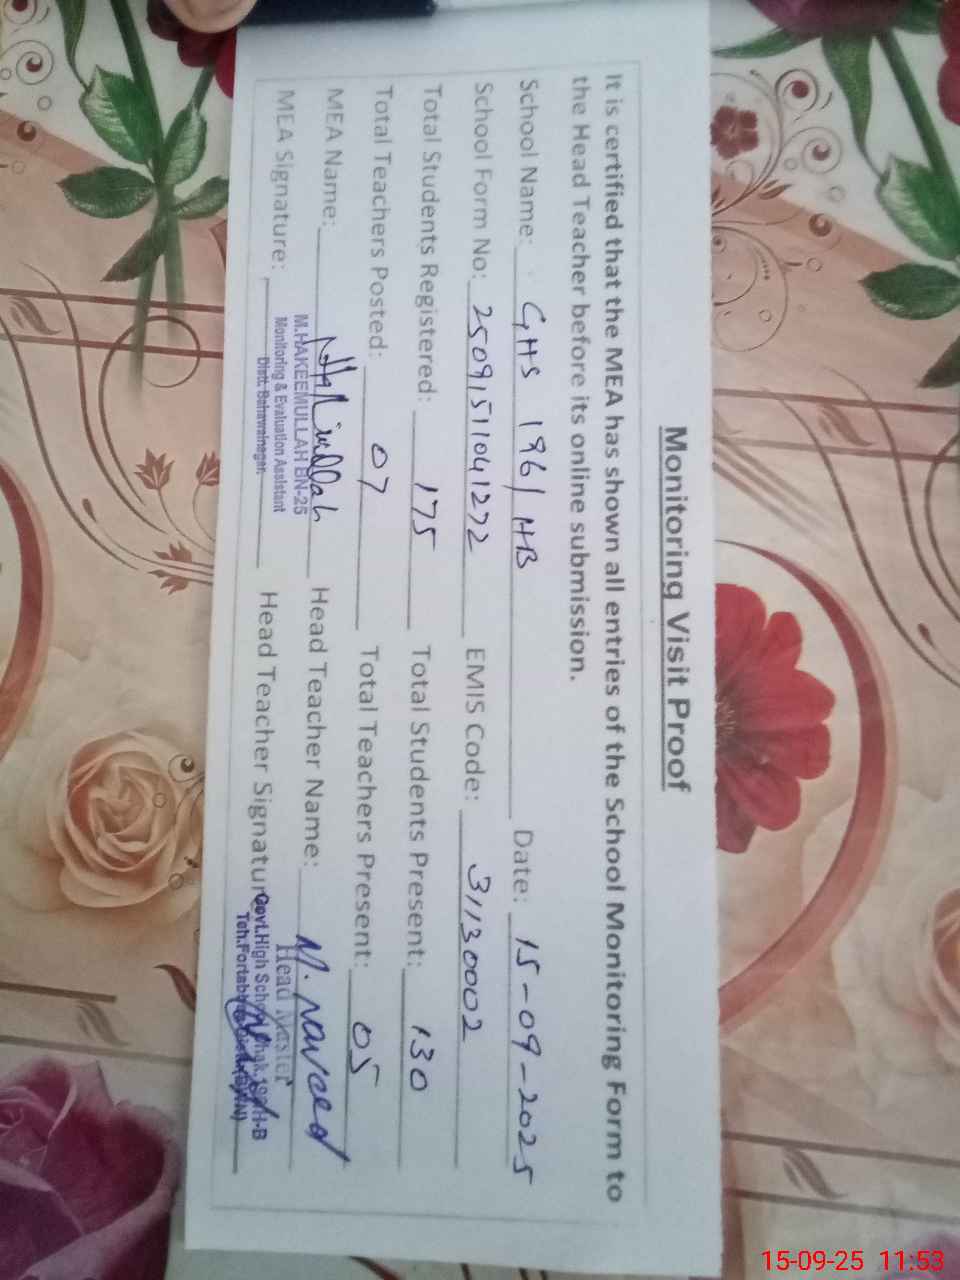 Monitoring Visit Proof
It is certified that the MEA has shown all entries of the School Monitoring Form to
the Head Teacher before its online submission.
School Name: GHS 196/HB Date: 15-09-2025
School Form No: 2509151041272 EMIS Code: 31130002
Total Students Registered: 175 Total Students Present: 130
Total Teachers Posted: 07 Total Teachers Present: 05
MEA Name: Head Teacher Name: M. Naveed
M.HAKEEMULLAH BN-25 Head Master
MEA Signature: Monitoring & Evaluation Assistant Head Teacher Signature Govt.High School Chak.196/H-B
Distt. Bahawalnagar. Teh.Fortabbas
15-09-25 11:53